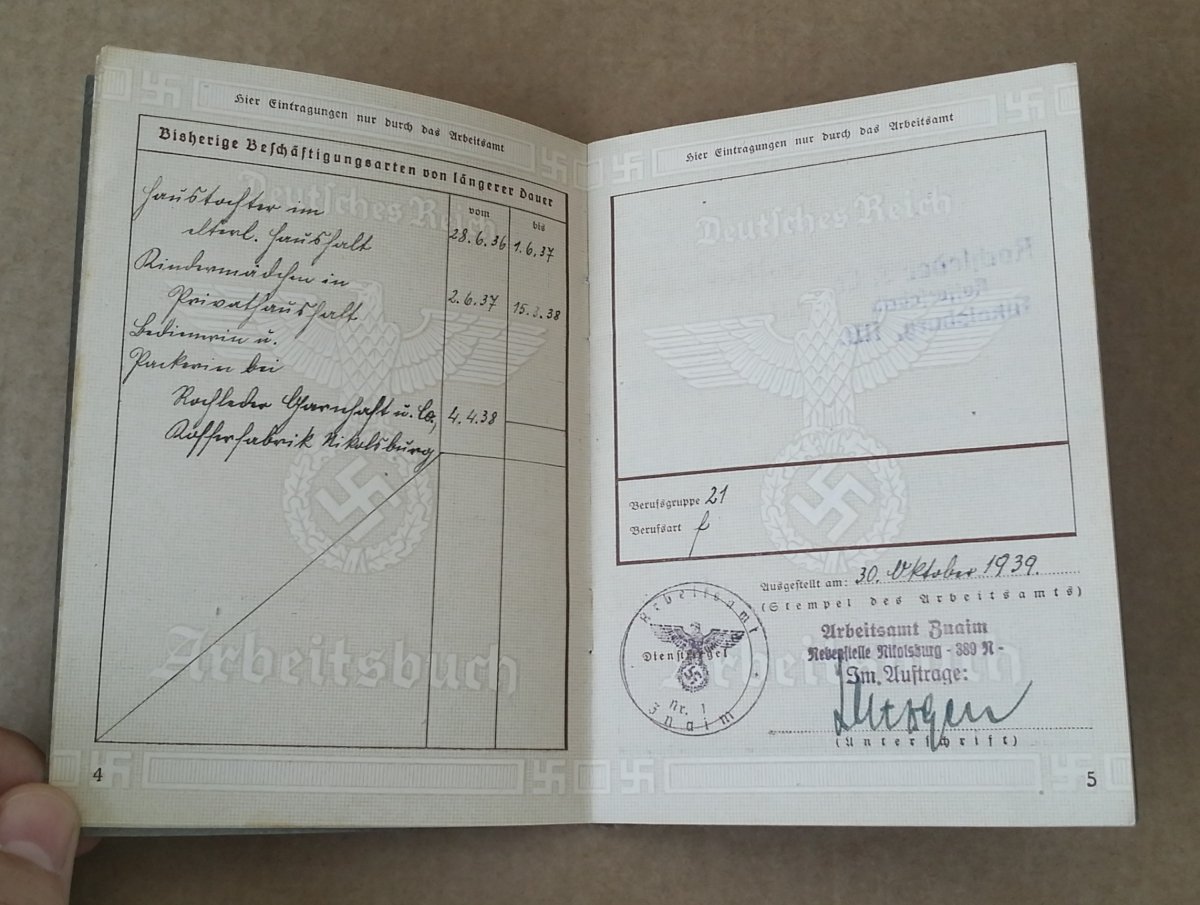 Hier Eintragungen nur durch das Arbeitsamt
Bisherige Beschäftigungsarten von längerer Dauer
vom
bis
Haustochter im
elterl. Haushalt 28.6.36 1.6.37
Kindermädchen in
Privathaushalt 2.6.37 15.3.38
Bedienerin u.
Packerin bei
Rochleder u. Co, 4.4.38
Kofferfabrik Nikolsburg
Deutsches Reich
Arbeitsbuch
4
Hier Eintragungen nur durch das Arbeitsamt
Deutsches Reich
Rochleder
Nikolsburg
Berufsgruppe 21
Berufsart f
Ausgestellt am: 30. Oktober 1939.
(Stempel des Arbeitsamts)
Arbeitsamt
Dienstsiegel
Nr. 1
Znaim
Arbeitsamt Znaim
Nebenstelle Nikolsburg - 389 N -
Im Auftrage:
(Unterschrift)
Arbeitsbuch
5